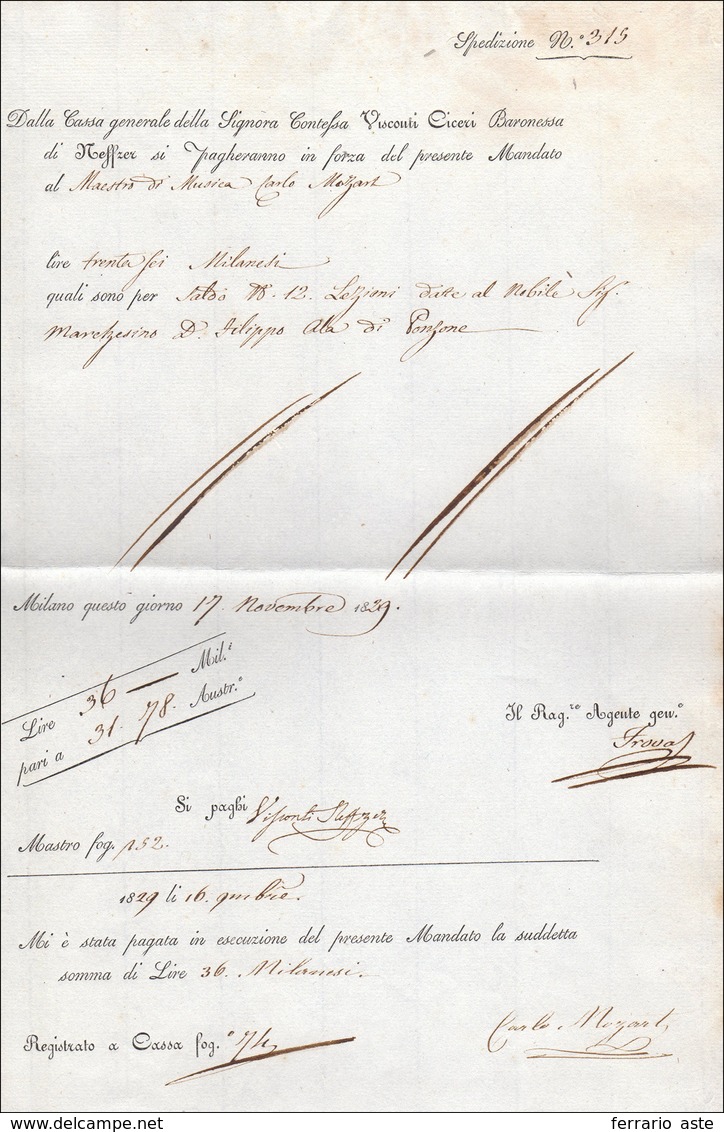 Spedizione N.º 315
Dalla Cassa generale della Signora Contessa Visconti Ciceri Baronessa
di Neffzer si pagheranno in forza del presente Mandato
al Maestro di Musica Carlo Mozart
lire trenta sei Milanesi
quali sono per saldo N. 12. Lezzioni date al Nobile Sig.
Marchesino D. Filippo Ala di Ponzone
Milano questo giorno 17. Novembre 1829.
Lire 36 — Mil.i
pari a 31. 78. Austr.e
Il Rag.to Agente gen.e
Frova
Si paghi Visconti Neffzer
Mastro fog. 152.
1829 li 16. 9mbre.
Mi è stata pagata in esecuzione del presente Mandato la suddetta
somma di Lire 36. Milanesi.
Carlo Mozart
Registrato a Cassa fog.o 74
ferrario aste